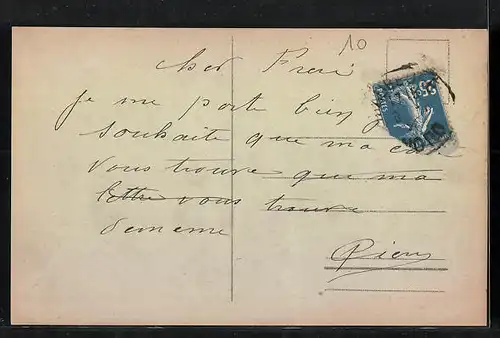 10
Cher Frere
je me porte bien je
souhaite que ma
vous trouve que ma
lettre vous trouve
de meme
25